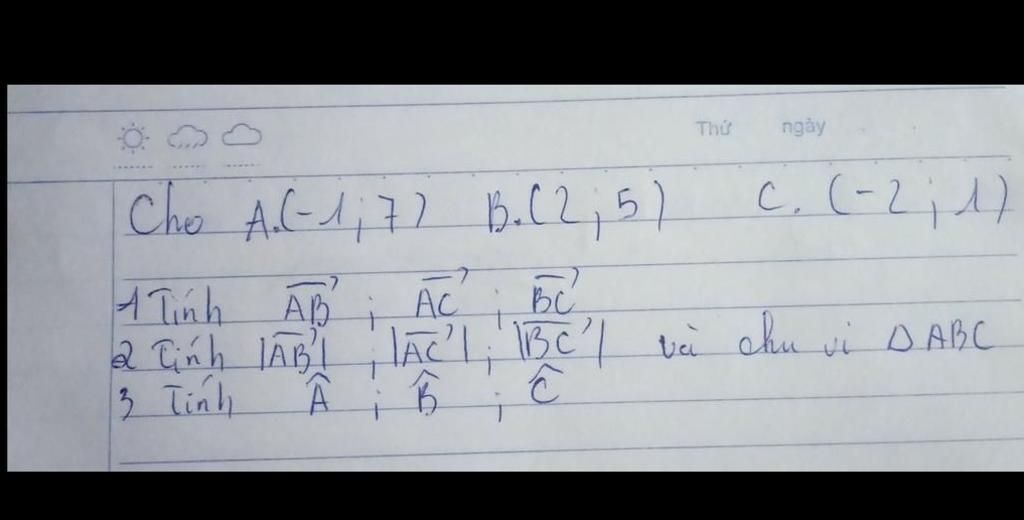 Thứ ngày
Cho A.(-1;7) B.(2;5) C.(-2;1)
1 Tính \overrightarrow{AB} ; \overrightarrow{AC} ; \overrightarrow{BC}
2 Tính |\overrightarrow{AB}| ; |\overrightarrow{AC}| ; |\overrightarrow{BC}| và chu vi ΔABC
3 Tính \widehat{A} ; \widehat{B} ; \widehat{C}